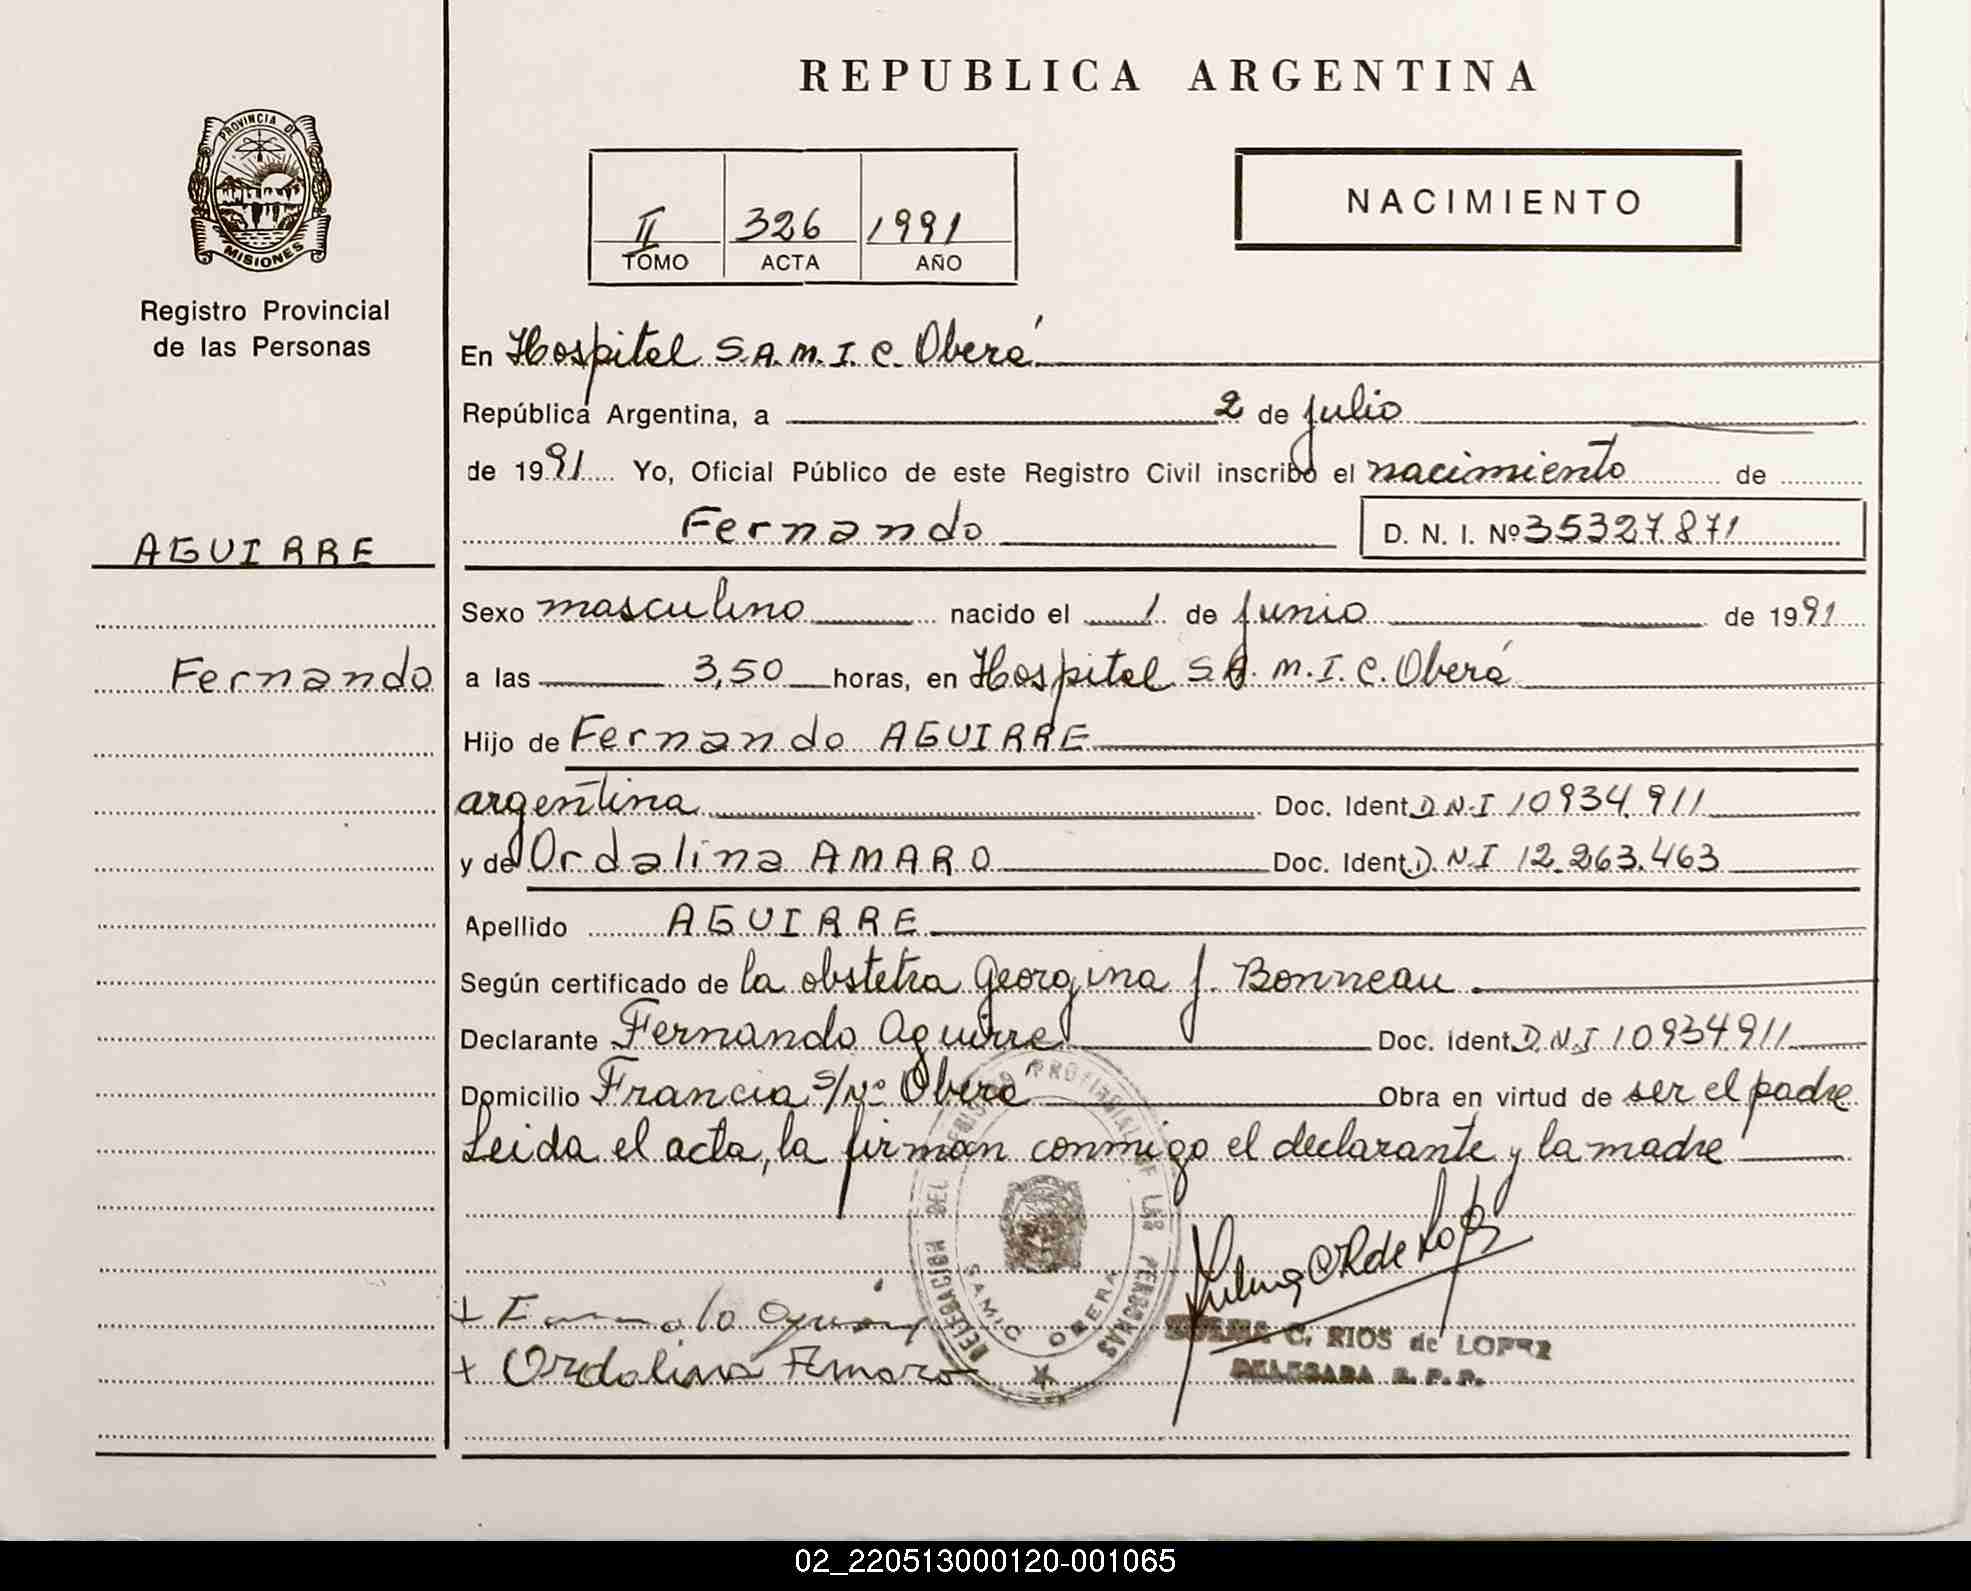 REPUBLICA ARGENTINA
PROVINCIA DE
MISIONES
Registro Provincial
de las Personas
NACIMIENTO
II 326 1991
TOMO ACTA AÑO
En Hospital S.A.M.I.C. Oberá
República Argentina, a 2 de julio
de 1991 Yo, Oficial Público de este Registro Civil inscribo el nacimiento de
Fernando D. N. I. Nº 35327871
AGUIRRE
Sexo masculino nacido el 1 de junio de 1991
Fernando
a las 3,50 horas, en Hospital S.A.M.I.C. Oberá
Hijo de Fernando AGUIRRE
argentina Doc. Ident. D.N.I 10934.911
y de Ordalina AMARO Doc. Ident. D.N.I 12.263.463
Apellido AGUIRRE
Según certificado de la obstetra Georgina J. Bonneau
Declarante Fernando Aguirre Doc. Ident. D.N.I 10934911
Domicilio Francia s/nº Oberá Obra en virtud de ser el padre
Leida el acta, la firman conmigo el declarante y la madre
DELEGACION DEL REGISTRO PROVINCIAL DE LAS PERSONAS
SAMIC OBERA
+ Ordalina Amaro
C. RIOS de LOPEZ
DELEGADA R. P. P.
02_220513000120-001065